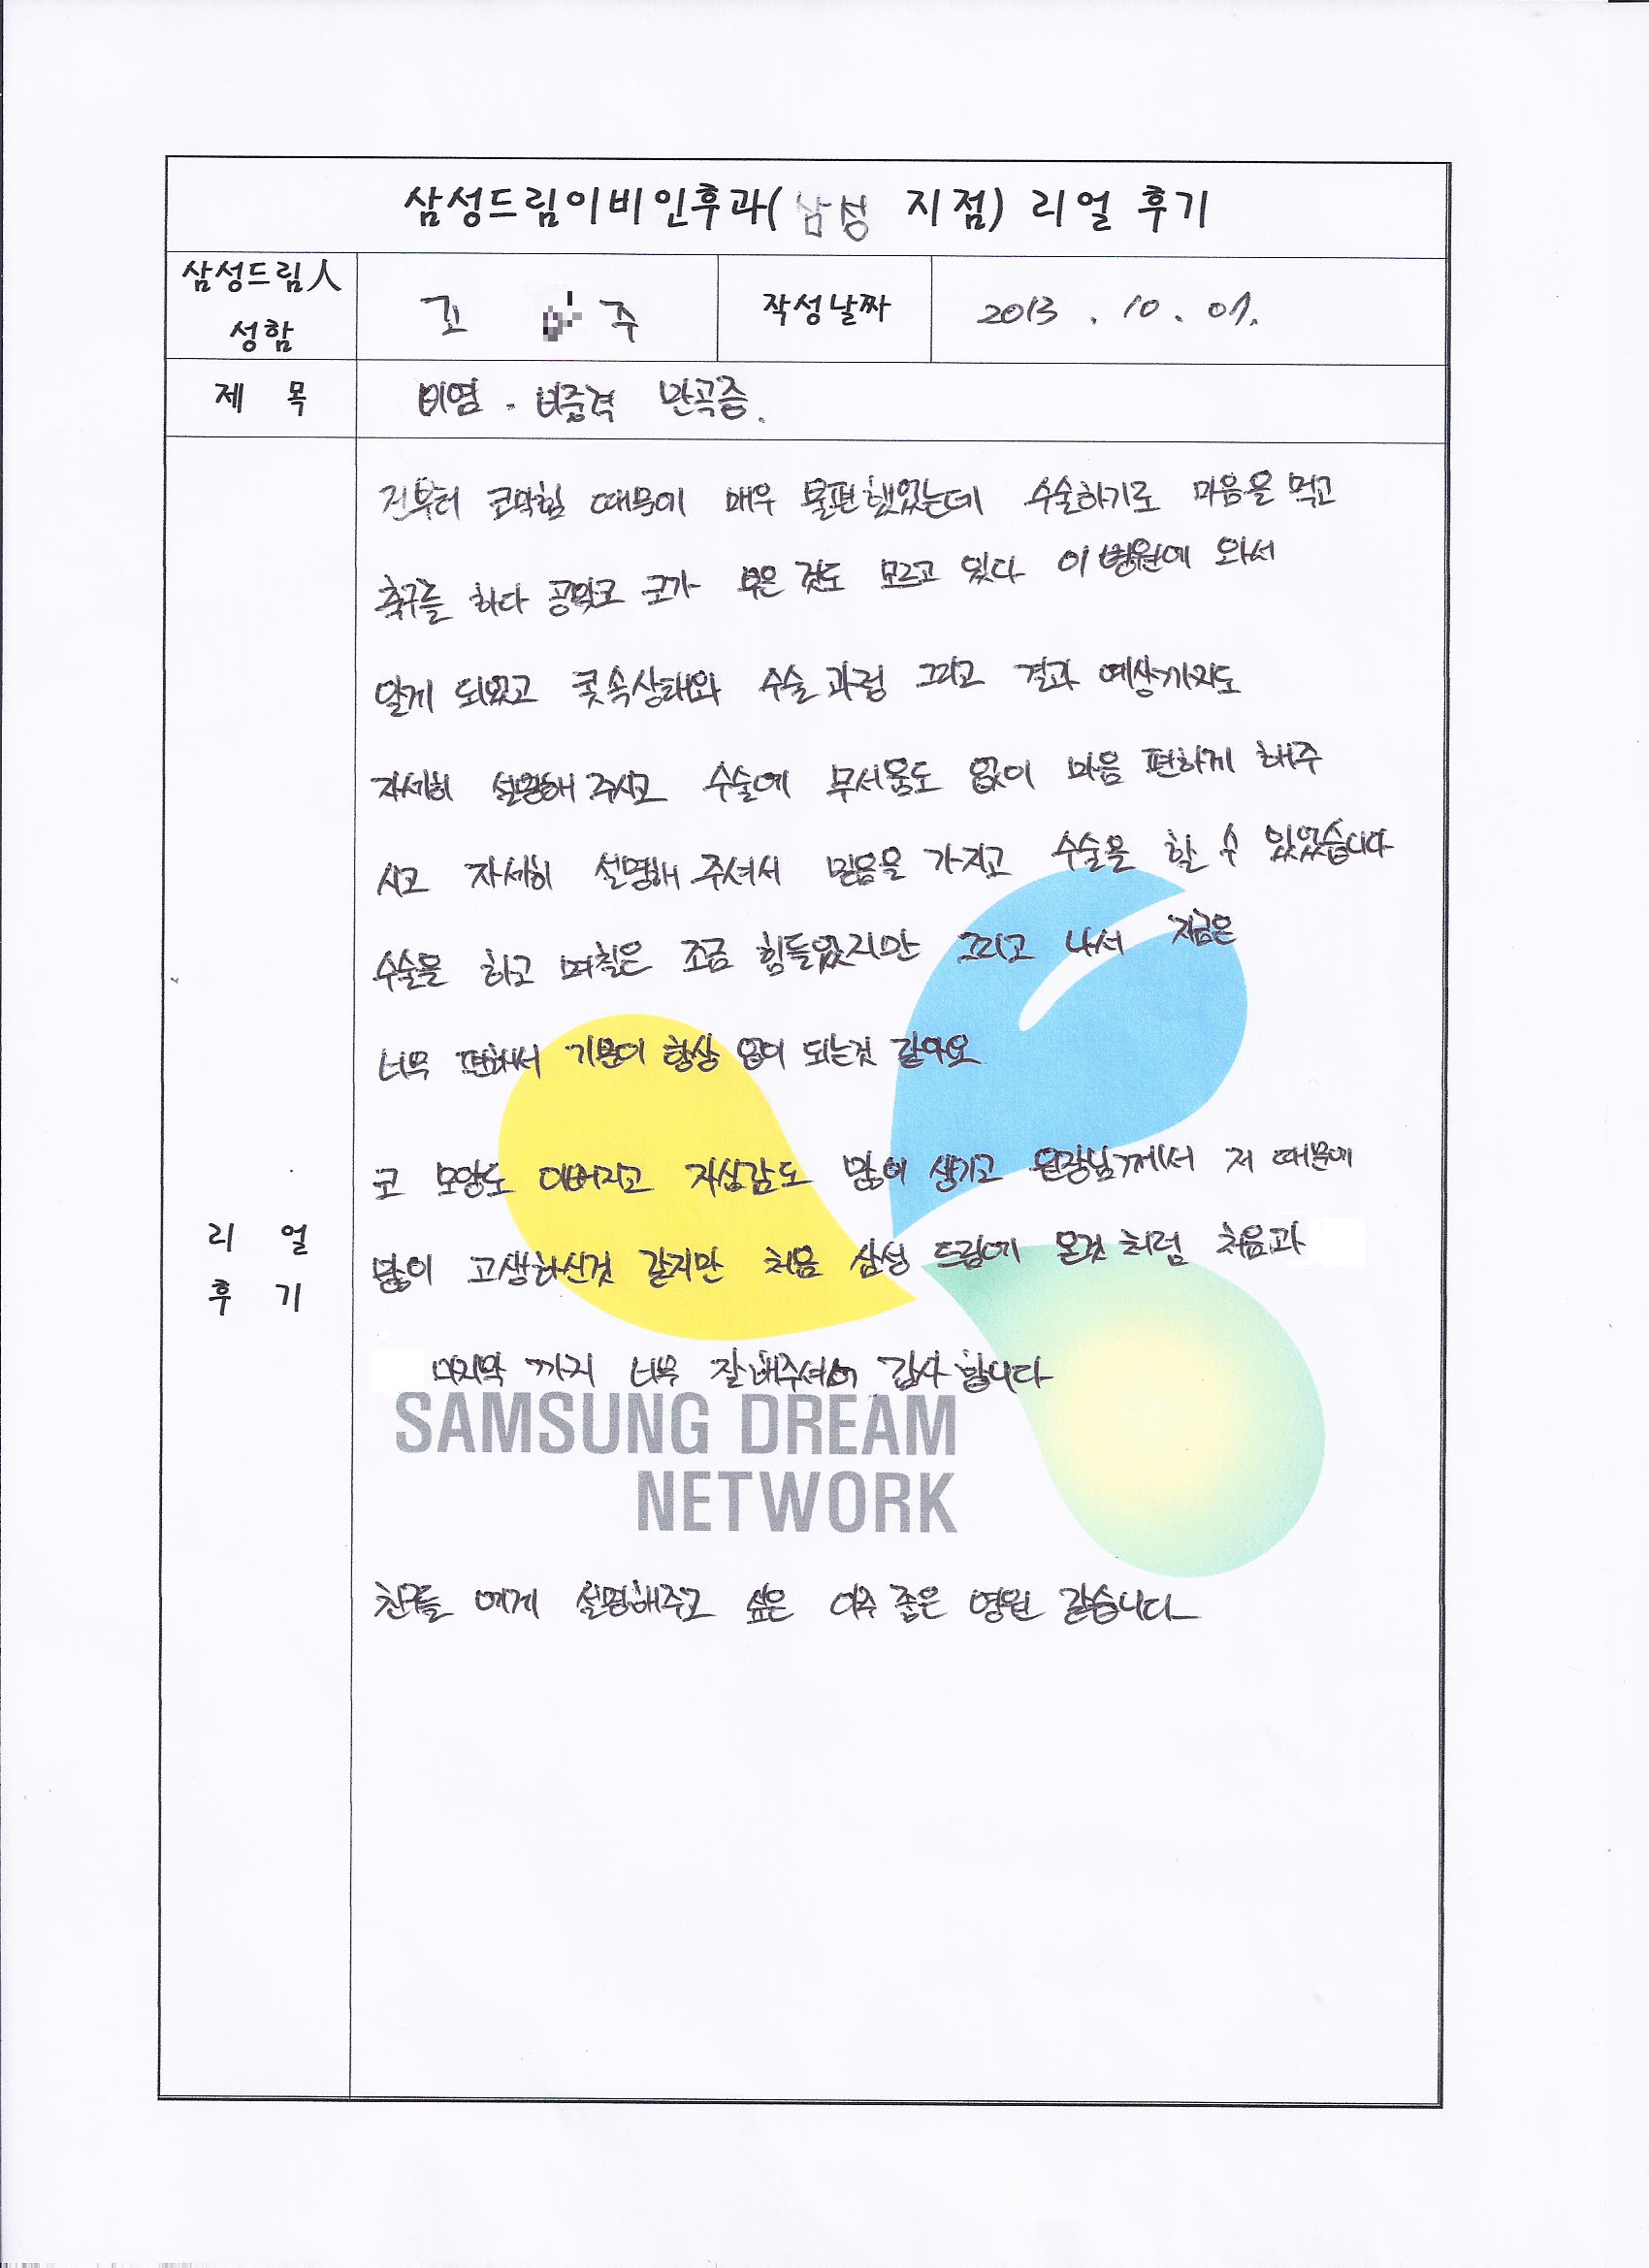 삼성드림이비인후과(삼성 지점) 리얼 후기
삼성드림人
성함
고 주
작성날짜
2013 . 10 . 07.
제 목
비염 . 비중격 만곡증.
전부터 코막힘 때문에 매우 불편했었는데 수술하기로 마음을 먹고
축구를 하다 공맞고 코가 부은 것도 모르고 있다 이 병원에 와서
알게 되었고 콧속상태와 수술과정 그리고 결과 예상까지도
자세히 설명해 주시고 수술에 무서움도 없이 마음 편하게 해주
시고 자세히 설명해 주셔서 믿음을 가지고 수술을 할 수 있었습니다
수술을 하고 며칠은 조금 힘들었지만 그리고 나서 지금은
너무 편해서 기분이 항상 업이 되는것 같아요
코 모양도 이뻐지고 자상감도 많이 생기고 원장님께서 저 때문에
많이 고생하신것 같지만 처음 삼성 드림에 온것 처럼 처음과
마지막 까지 너무 잘해주셔서 감사 합니다
SAMSUNG DREAM
NETWORK
친구들 에게 설명해주고 싶은 아주 좋은 병원 같습니다
리 얼
후 기